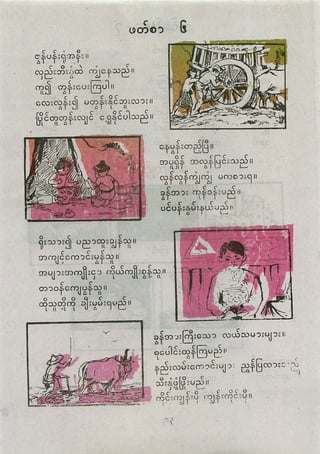 ဖတ်စာ ၆
ငွန်ပန်းရုံအနီး။
လှည်းဘီးဂျွံထဲ ကျွံနေသည်။
ကူ၍ တွန်းပေးကြပါ။
လေးလွန်း၍ မတွန်းနိုင်ဘူးလား။
ပြိုင်တူတွန်းလျှင် ရွေ့နိုင်ပါသည်။
နေမွန်းတည်ပြီ။
အပူရှိန် အလွန်ပြင်းသည်။
လွန်လွန်ကျွံကျွံ မကစားရ။
ခွန်အား ကုန်ခန်းမည်။
ပင်ပန်းနွမ်းနယ်မည်။
ရိုးသား၍ ပညာထူးချွန်သူ။
အကျင့်ကောင်းမွန်သူ။
အများအကျိုးငှာ ကိုယ်ကျိုးစွန့်သူ။
တာဝန်ကျေပွန်သူ။
ထိုသူတို့ကို ချီးမွမ်းရမည်။
ခွန်အားကြီးသော လယ်သမားများ။
စုပေါင်းထွန်ကြမည်။
နည်းလမ်းကောင်းများ ညွှန်ပြထားသည်
သီးနှံဖွံ့ဖြိုးမည်။
ကိုင်းကျွန်းမှီ ကျွန်းကိုင်းမှီ။